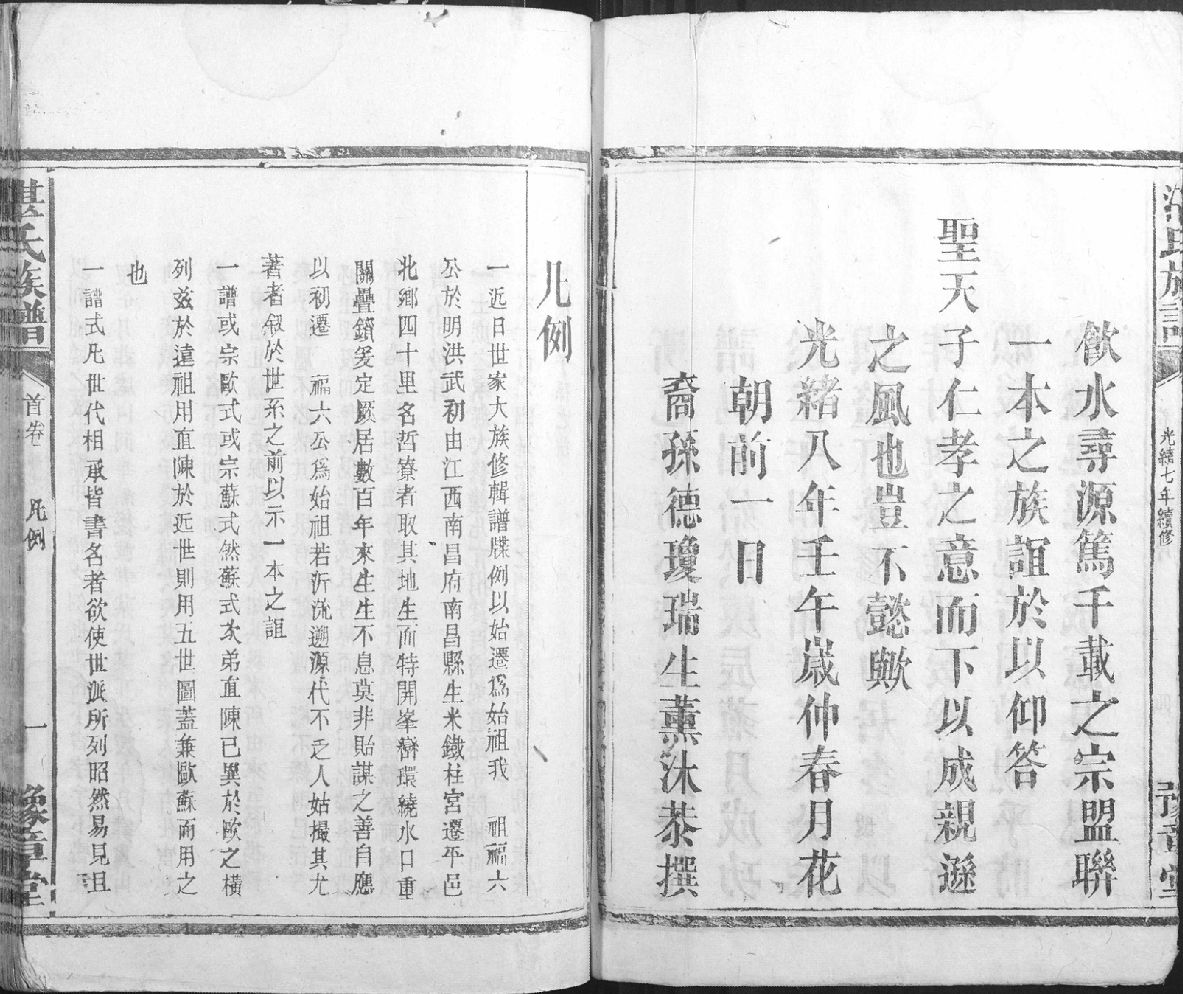 光緒七年續修
飲水尋源篤千載之宗盟聯
一本之族誼於以仰答
聖天子仁孝之意而下以成親遜
之風也豈不懿歟
光緒八年壬午歲仲春月花
朝前一日
裔孫德瓊瑞生薰沐恭撰
凡例
一近日世家大族修輯譜牒例以始遷爲始祖我 祖福六
公於明洪武初由江西南昌府南昌縣生米鐵柱宮遷平邑
北鄉四十里名哲寮者取其地生而特開峯巒環繞水口重
關疊鎖爰定厥居數百年來生生不息莫非貽謀之善自應
以初遷 福六公爲始祖若沂流遡源代不乏人姑撮其尤
著者叙於世系之前以示一本之誼
一譜或宗歐式或宗蘇式然蘇式次弟直陳已異於歐之橫
列兹於遠祖用直陳於近世則用五世圖蓋兼歐蘇而用之
也
一譜式凡世代相承皆書名者欲使世派所列昭然易見且
湛氏族譜
首卷
凡例
一
豫章堂